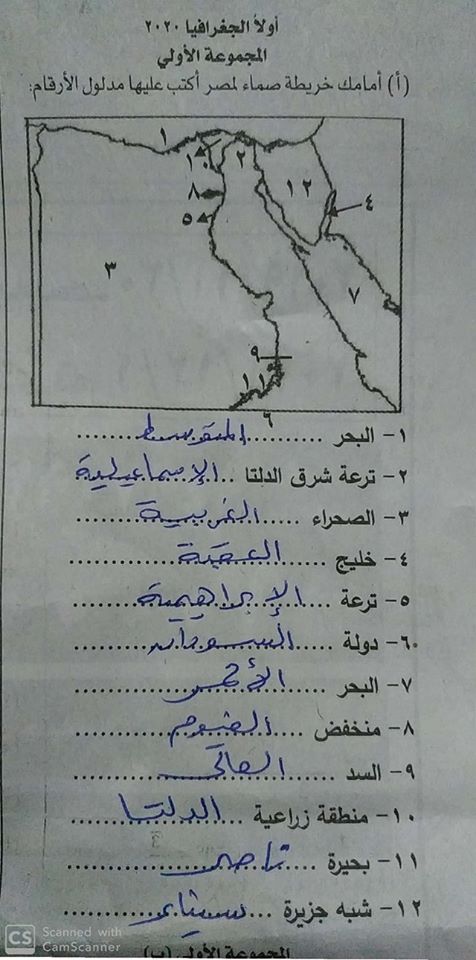 أولاً الجغرافيا ٢٠٢٠
المجموعة الأولي
(أ) أمامك خريطة صماء لمصر أكتب عليها مدلول الأرقام:
١
١٠
٢
٨
١٢
٤
٥
٣
٧
٩
١١
٦
١- البحر ..........المتوسط..........
٢- ترعة شرق الدلتا ..الإسماعيلية
٣- الصحراء .....الغربية..........
٤- خليج .......العقبة..........
٥- ترعة ....الإبراهيمية..........
٦- دولة ......السودان..........
٧- البحر ......الأحمر..........
٨- منخفض ....الفيوم..........
٩- السد ......العالى..........
١٠- منطقة زراعية ...الدلتا..........
١١- بحيرة .......ناصر..........
١٢- شبه جزيرة ...سيناء..........
المجموعة الأولي (ب)
CS Scanned with
CamScanner